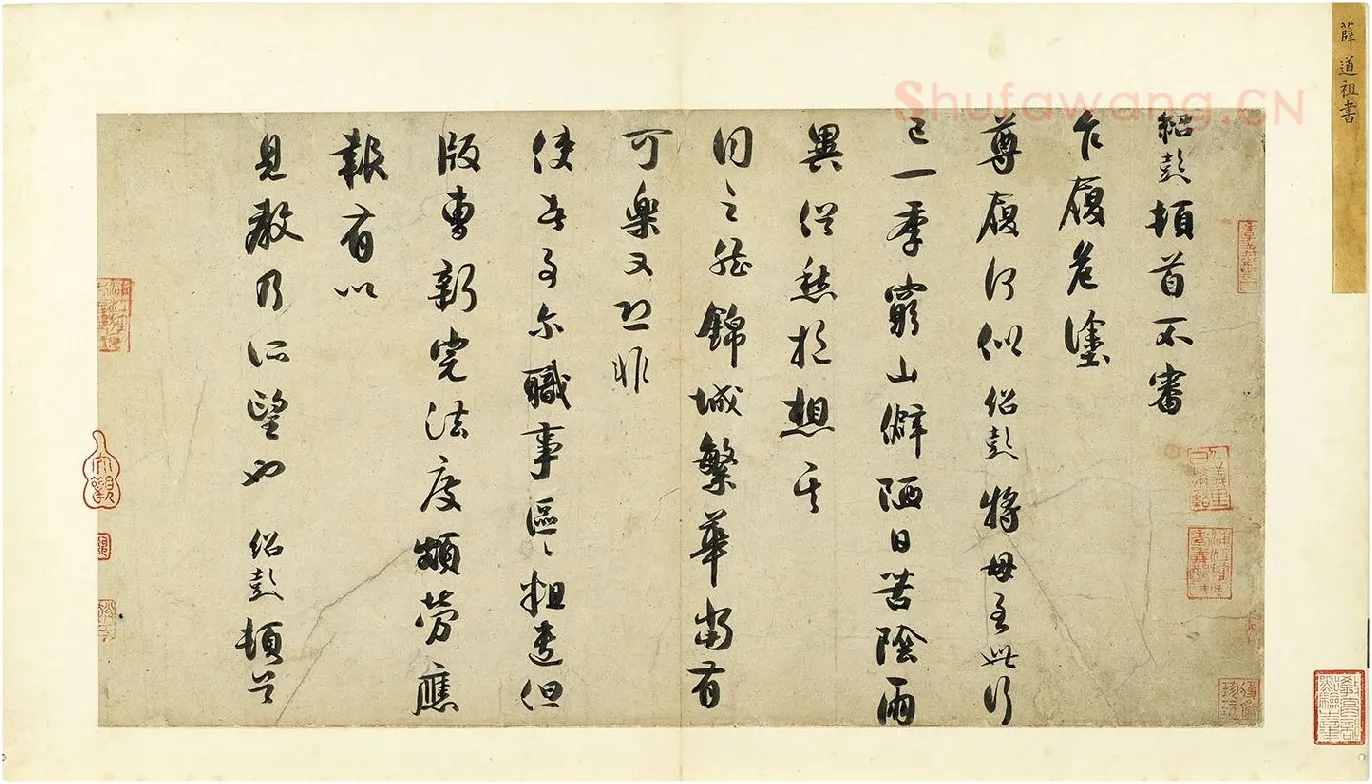 薛道祖書
Shufawang.CN
紹彭頓首不審
乍履危塗
尊履何似紹彭將母至此行
已一季窮山僻陋日苦陰雨
異俗愁於想其
同之然錦城繁華當有
可樂又恐非
使君事尔職事區區粗遣但
版曹新完法度頗勞應
報有以
見教乃所望也紹彭頓首